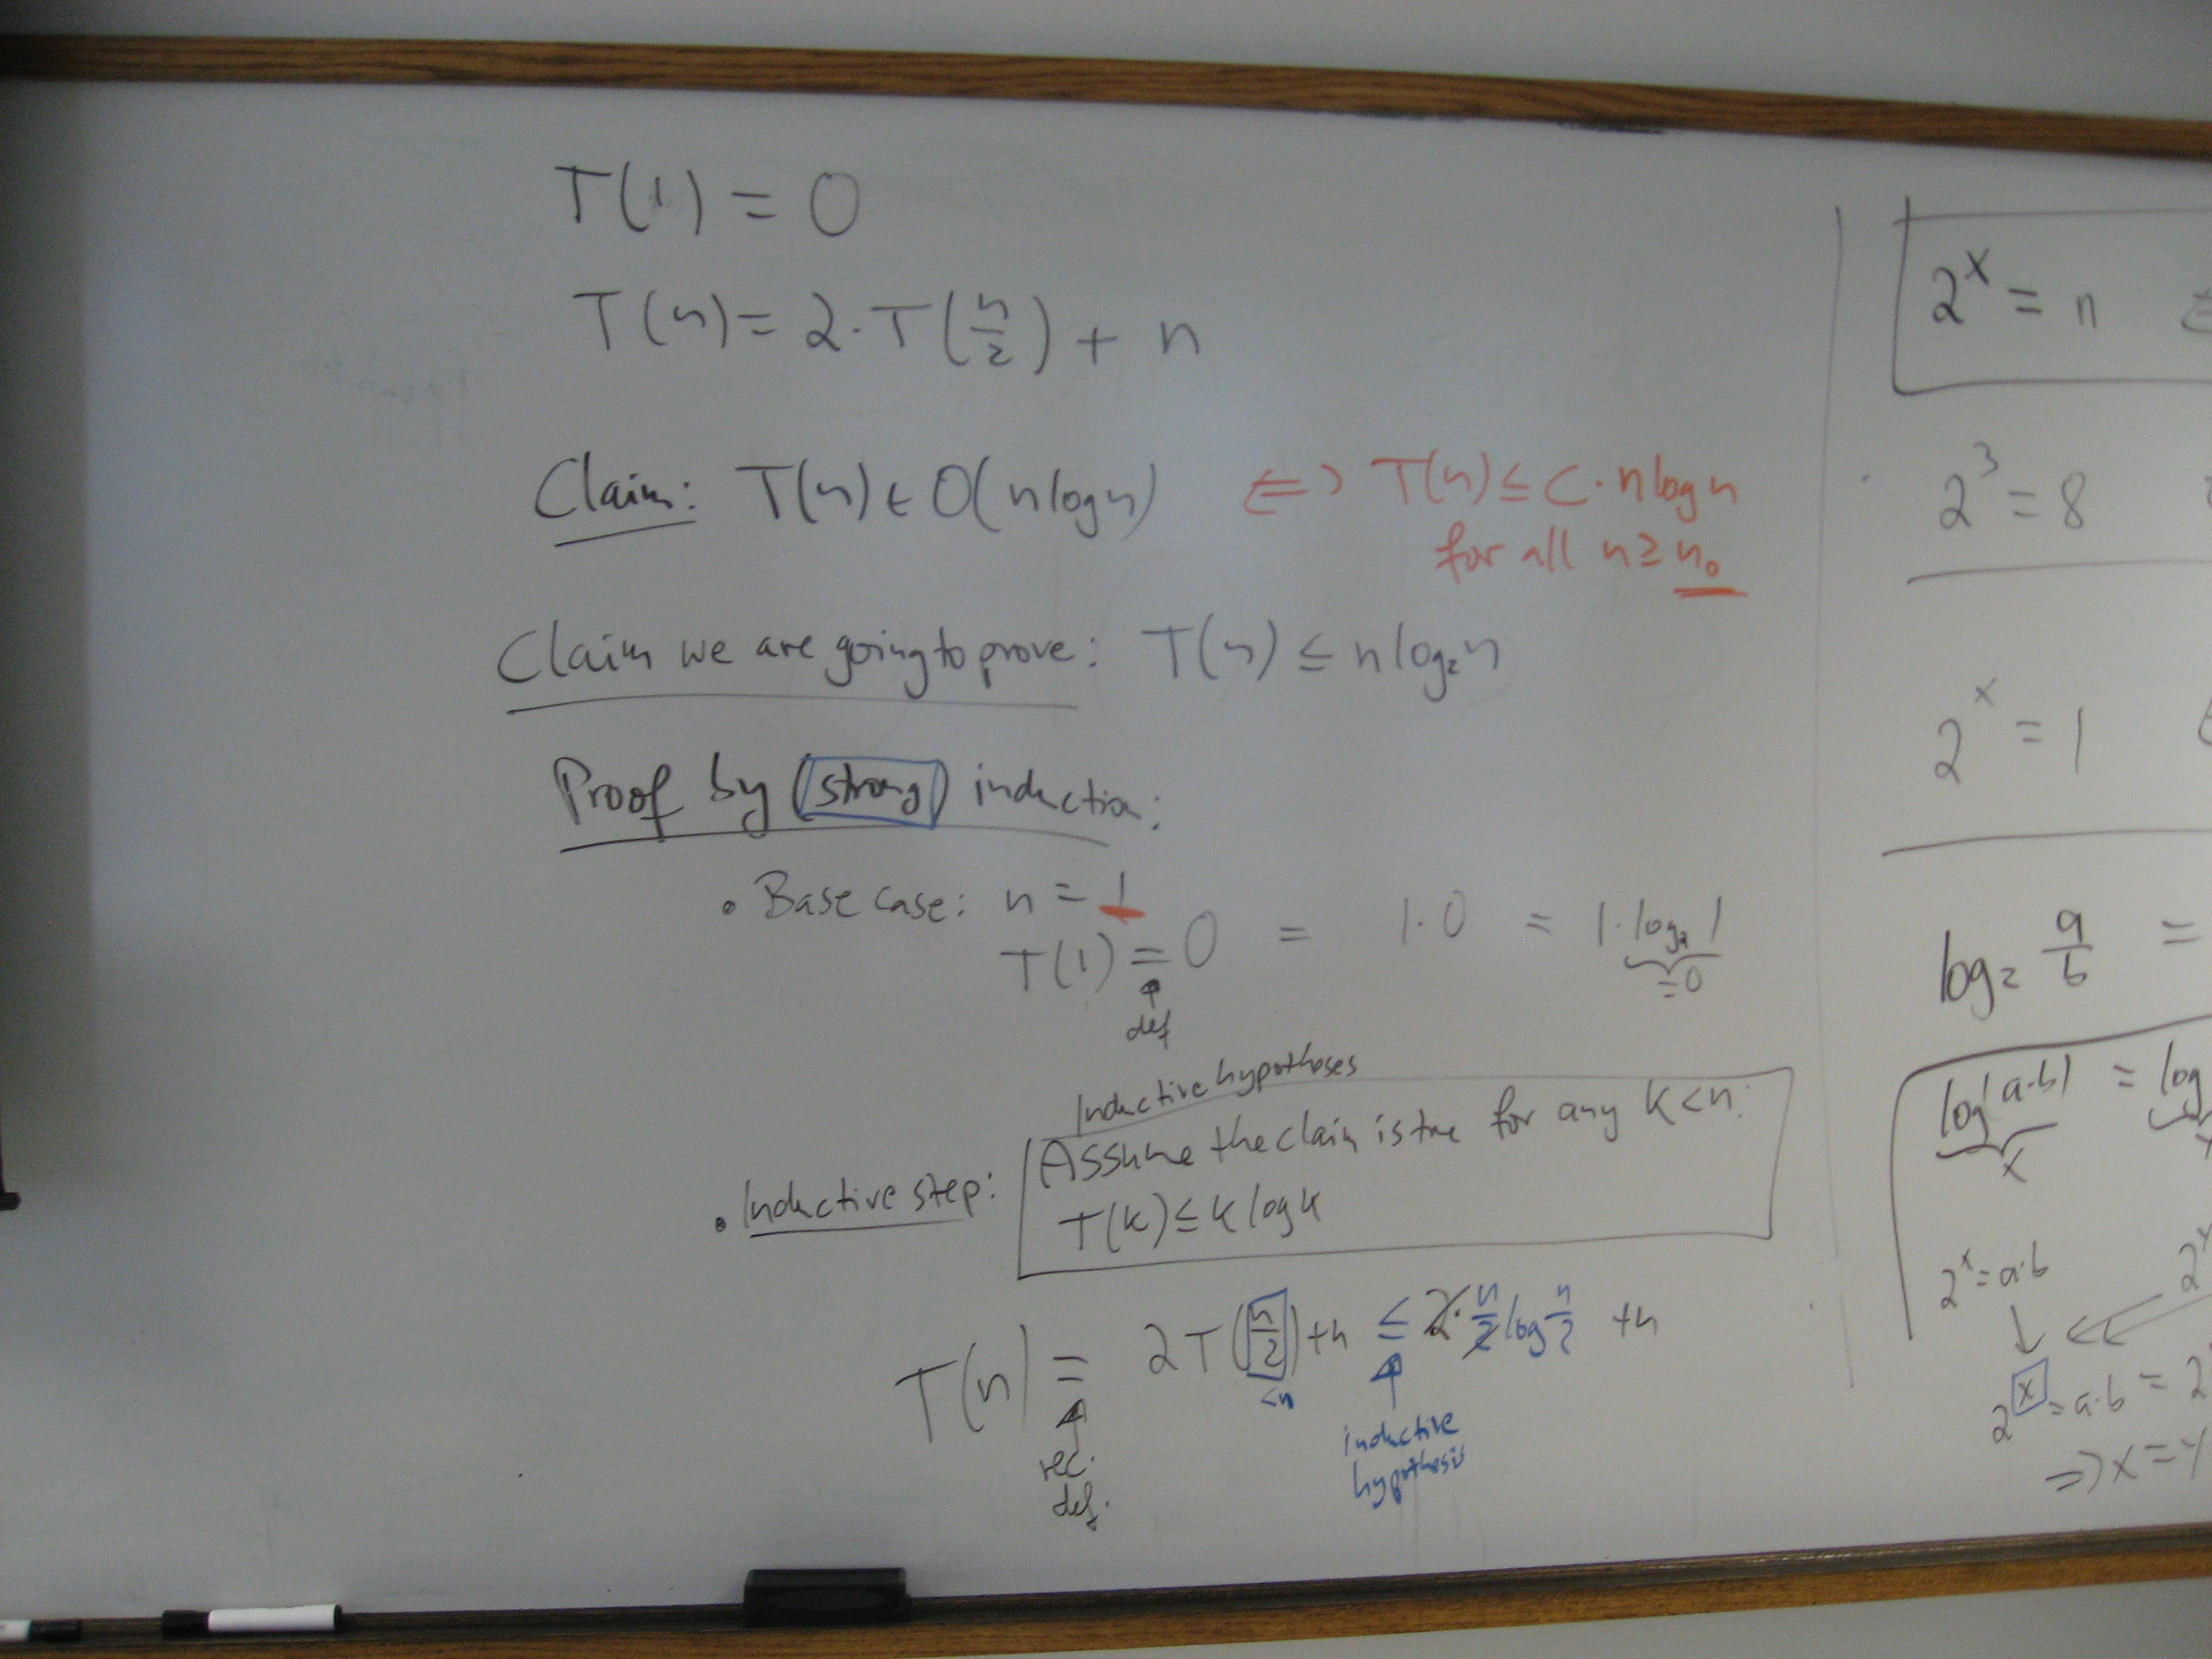 T(1) = 0
T(n) = 2·T(n/2) + n
Claim: T(n) ∈ O(n log n) ⇔ T(n) ≤ C·n log n
for all n ≥ n₀
Claim we are going to prove: T(n) ≤ n log₂ n
Proof by (strong) induction:
• Base case: n = 1
T(1) = 0 = 1·0 = 1·log₂ 1
= 0
def
Inductive hypotheses
• Inductive step: Assume the claim is true for any k < n:
T(k) ≤ k log k
T(n) = 2T(n/2) + n ≤ 2·n/2 log n/2 + n
< n
rec. def.
inductive hypothesis
2ˣ = n
2³ = 8
2ˣ = 1
log₂ a/b =
log(a·b) = log
x
2ˣ = a·b
2ˣ = a·b = 2
⇒ x = y